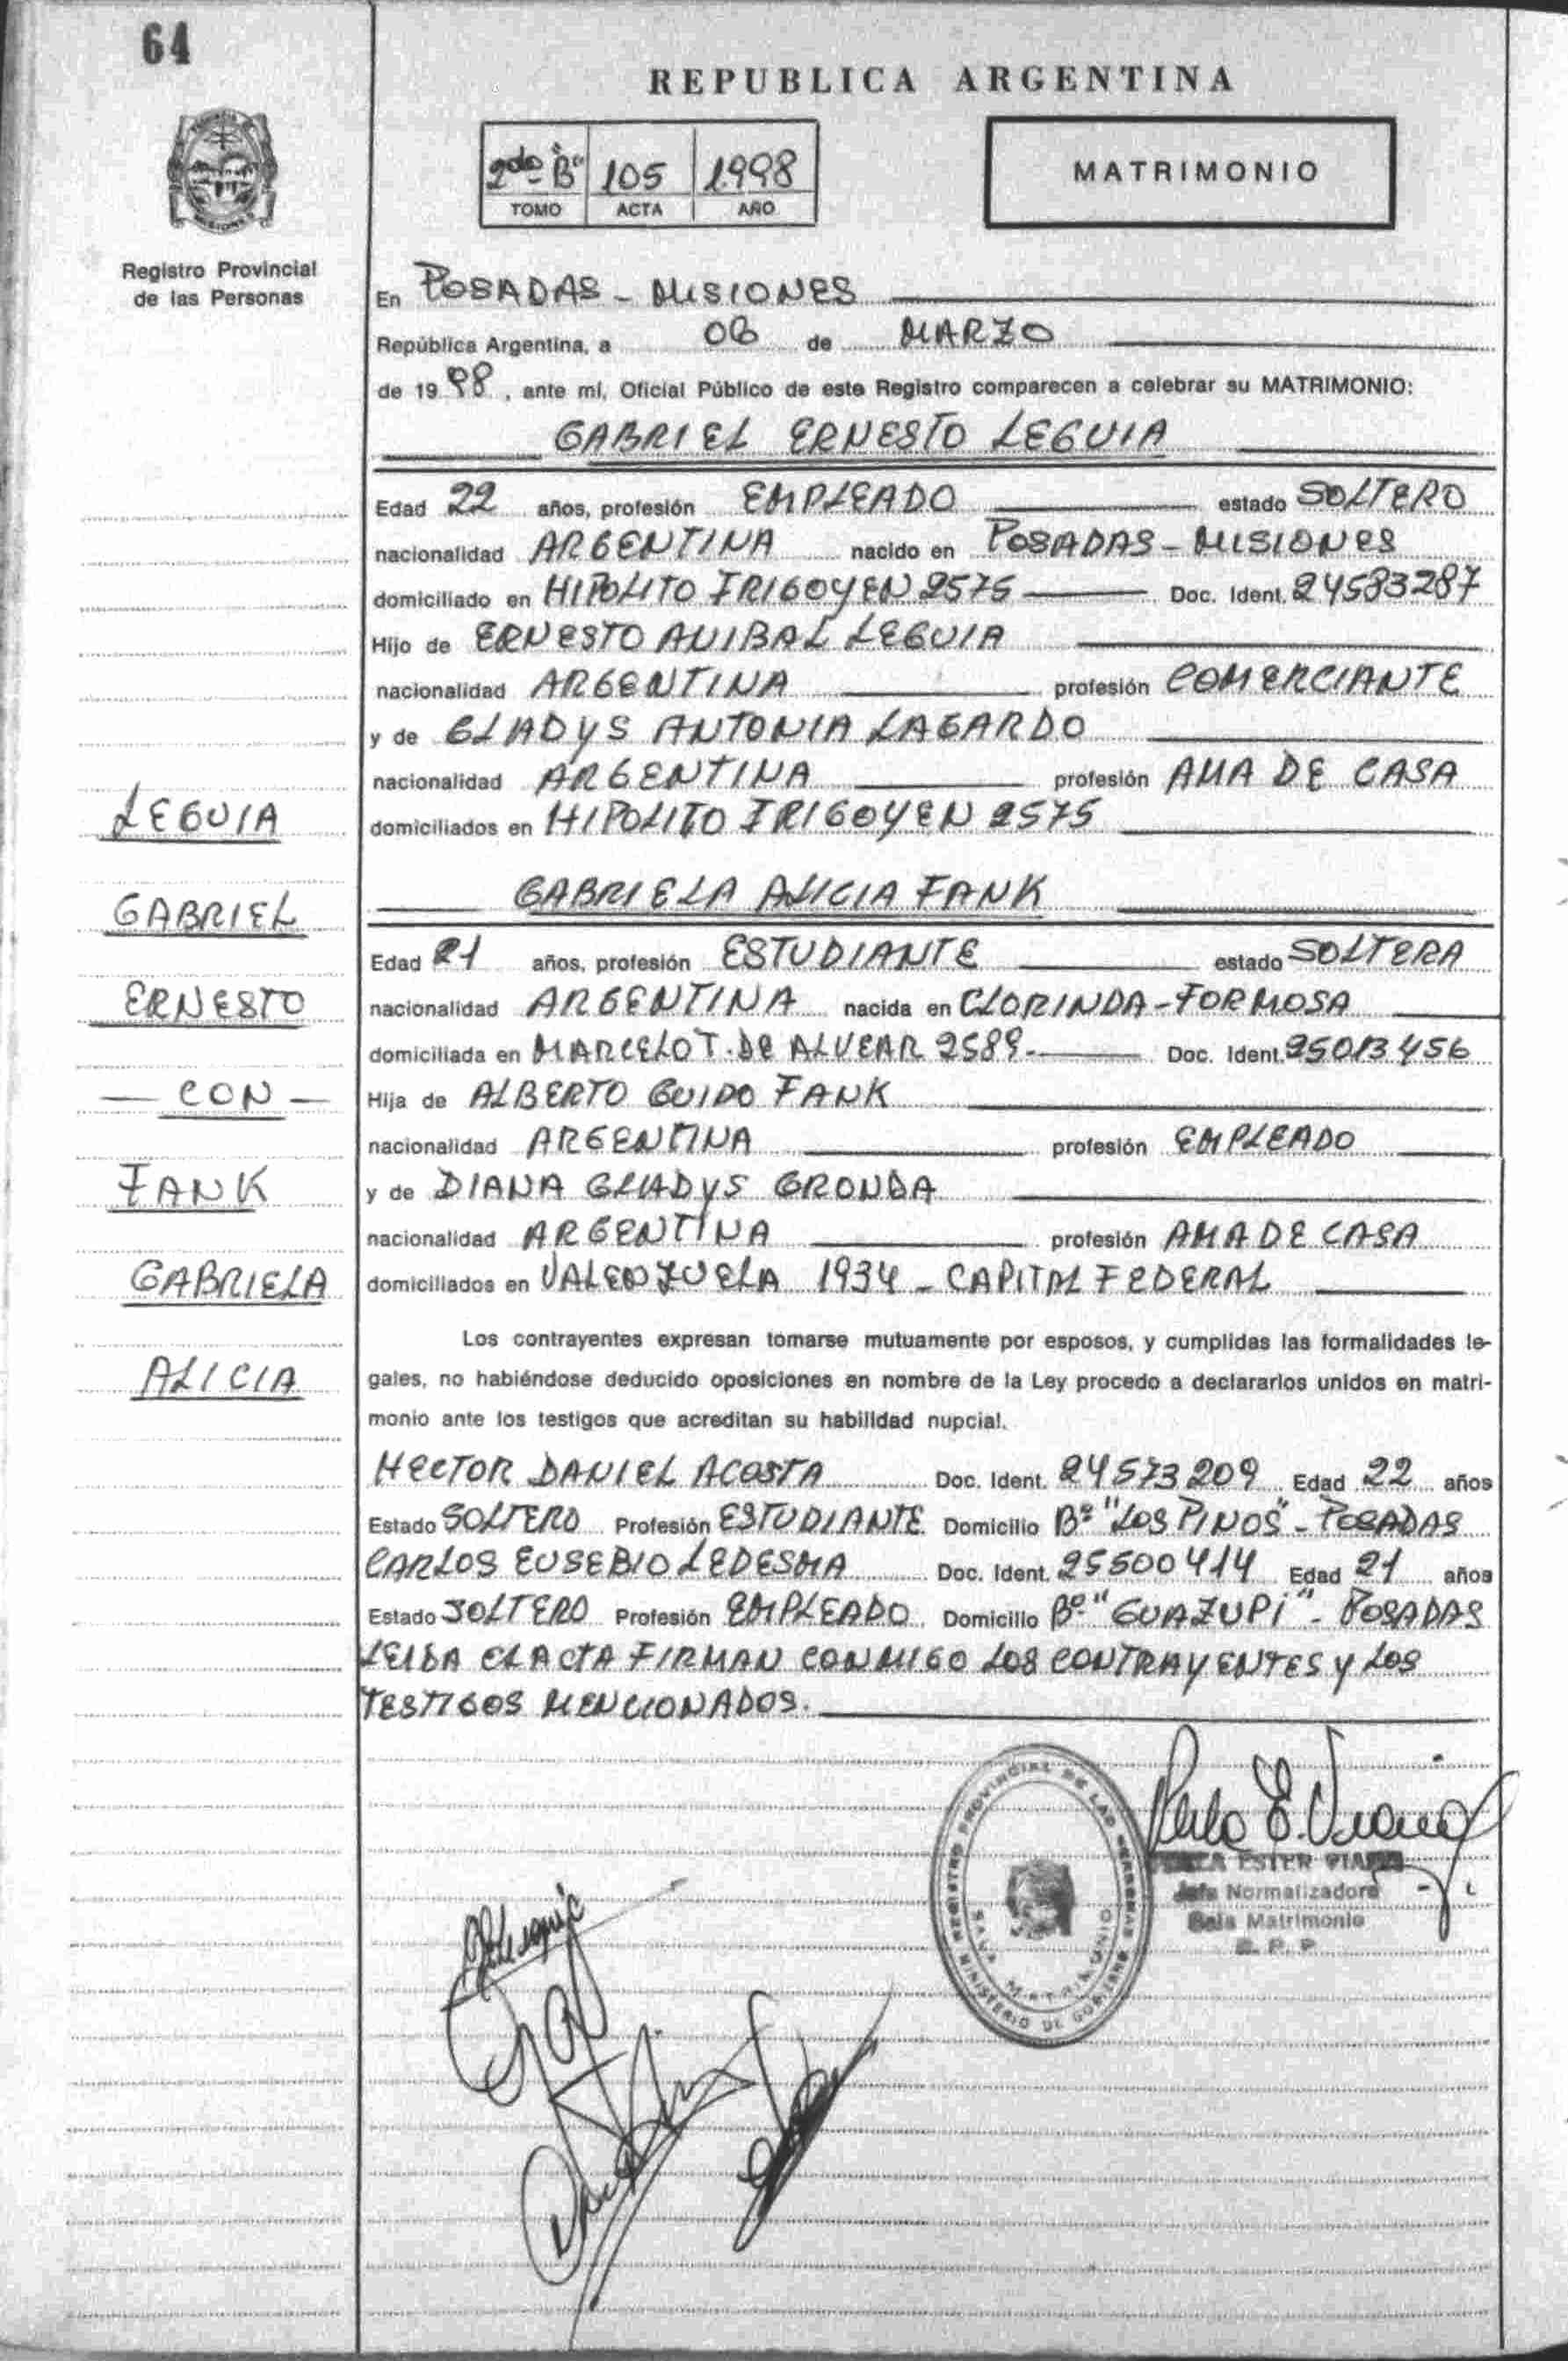 64
REPUBLICA ARGENTINA
2do Bº 105 1998
TOMO ACTA AÑO
MATRIMONIO
Registro Provincial
de las Personas
En POSADAS - MISIONES
República Argentina, a 06 de MARZO
de 19 98, ante mí, Oficial Público de este Registro comparecen a celebrar su MATRIMONIO:
GABRIEL ERNESTO LEGUIA
Edad 22 años, profesión EMPLEADO estado SOLTERO
nacionalidad ARGENTINA nacido en POSADAS - MISIONES
domiciliado en HIPOLITO IRIGOYEN 2575 Doc. Ident. 24583287
Hijo de ERNESTO ANIBAL LEGUIA
nacionalidad ARGENTINA profesión COMERCIANTE
y de GLADYS ANTONIA LAGARDO
nacionalidad ARGENTINA profesión AMA DE CASA
domiciliados en HIPOLITO IRIGOYEN 2575
GABRIELA ALICIA FANK
Edad 21 años, profesión ESTUDIANTE estado SOLTERA
nacionalidad ARGENTINA nacida en CLORINDA - FORMOSA
domiciliada en MARCELO T. DE ALVEAR 2589 Doc. Ident. 25013456
Hija de ALBERTO GUIDO FANK
nacionalidad ARGENTINA profesión EMPLEADO
y de DIANA GLADYS GRONDA
nacionalidad ARGENTINA profesión AMA DE CASA
domiciliados en VALENZUELA 1934 - CAPITAL FEDERAL
Los contrayentes expresan tomarse mutuamente por esposos, y cumplidas las formalidades le-
gales, no habiéndose deducido oposiciones en nombre de la Ley procedo a declararlos unidos en matri-
monio ante los testigos que acreditan su habilidad nupcial.
HECTOR DANIEL ACOSTA Doc. Ident. 24573209 Edad 22 años
Estado SOLTERO Profesión ESTUDIANTE Domicilio Bº "LOS PINOS" - POSADAS
CARLOS EUSEBIO LEDESMA Doc. Ident. 25500414 Edad 21 años
Estado SOLTERO Profesión EMPLEADO Domicilio Bº "GUAZUPI" - POSADAS
LEIDA EL ACTA FIRMAN CONMIGO LOS CONTRAYENTES Y LOS
TESTIGOS MENCIONADOS.
LEGUIA
GABRIEL
ERNESTO
- CON -
FANK
GABRIELA
ALICIA
REGISTRO PROVINCIAL DE LAS PERSONAS
MINISTERIO DE GOBIERNO
SALA MATRIMONIO
ESTER VIANA
Jefa Normalizadora
Sala Matrimonio
R. P. P.